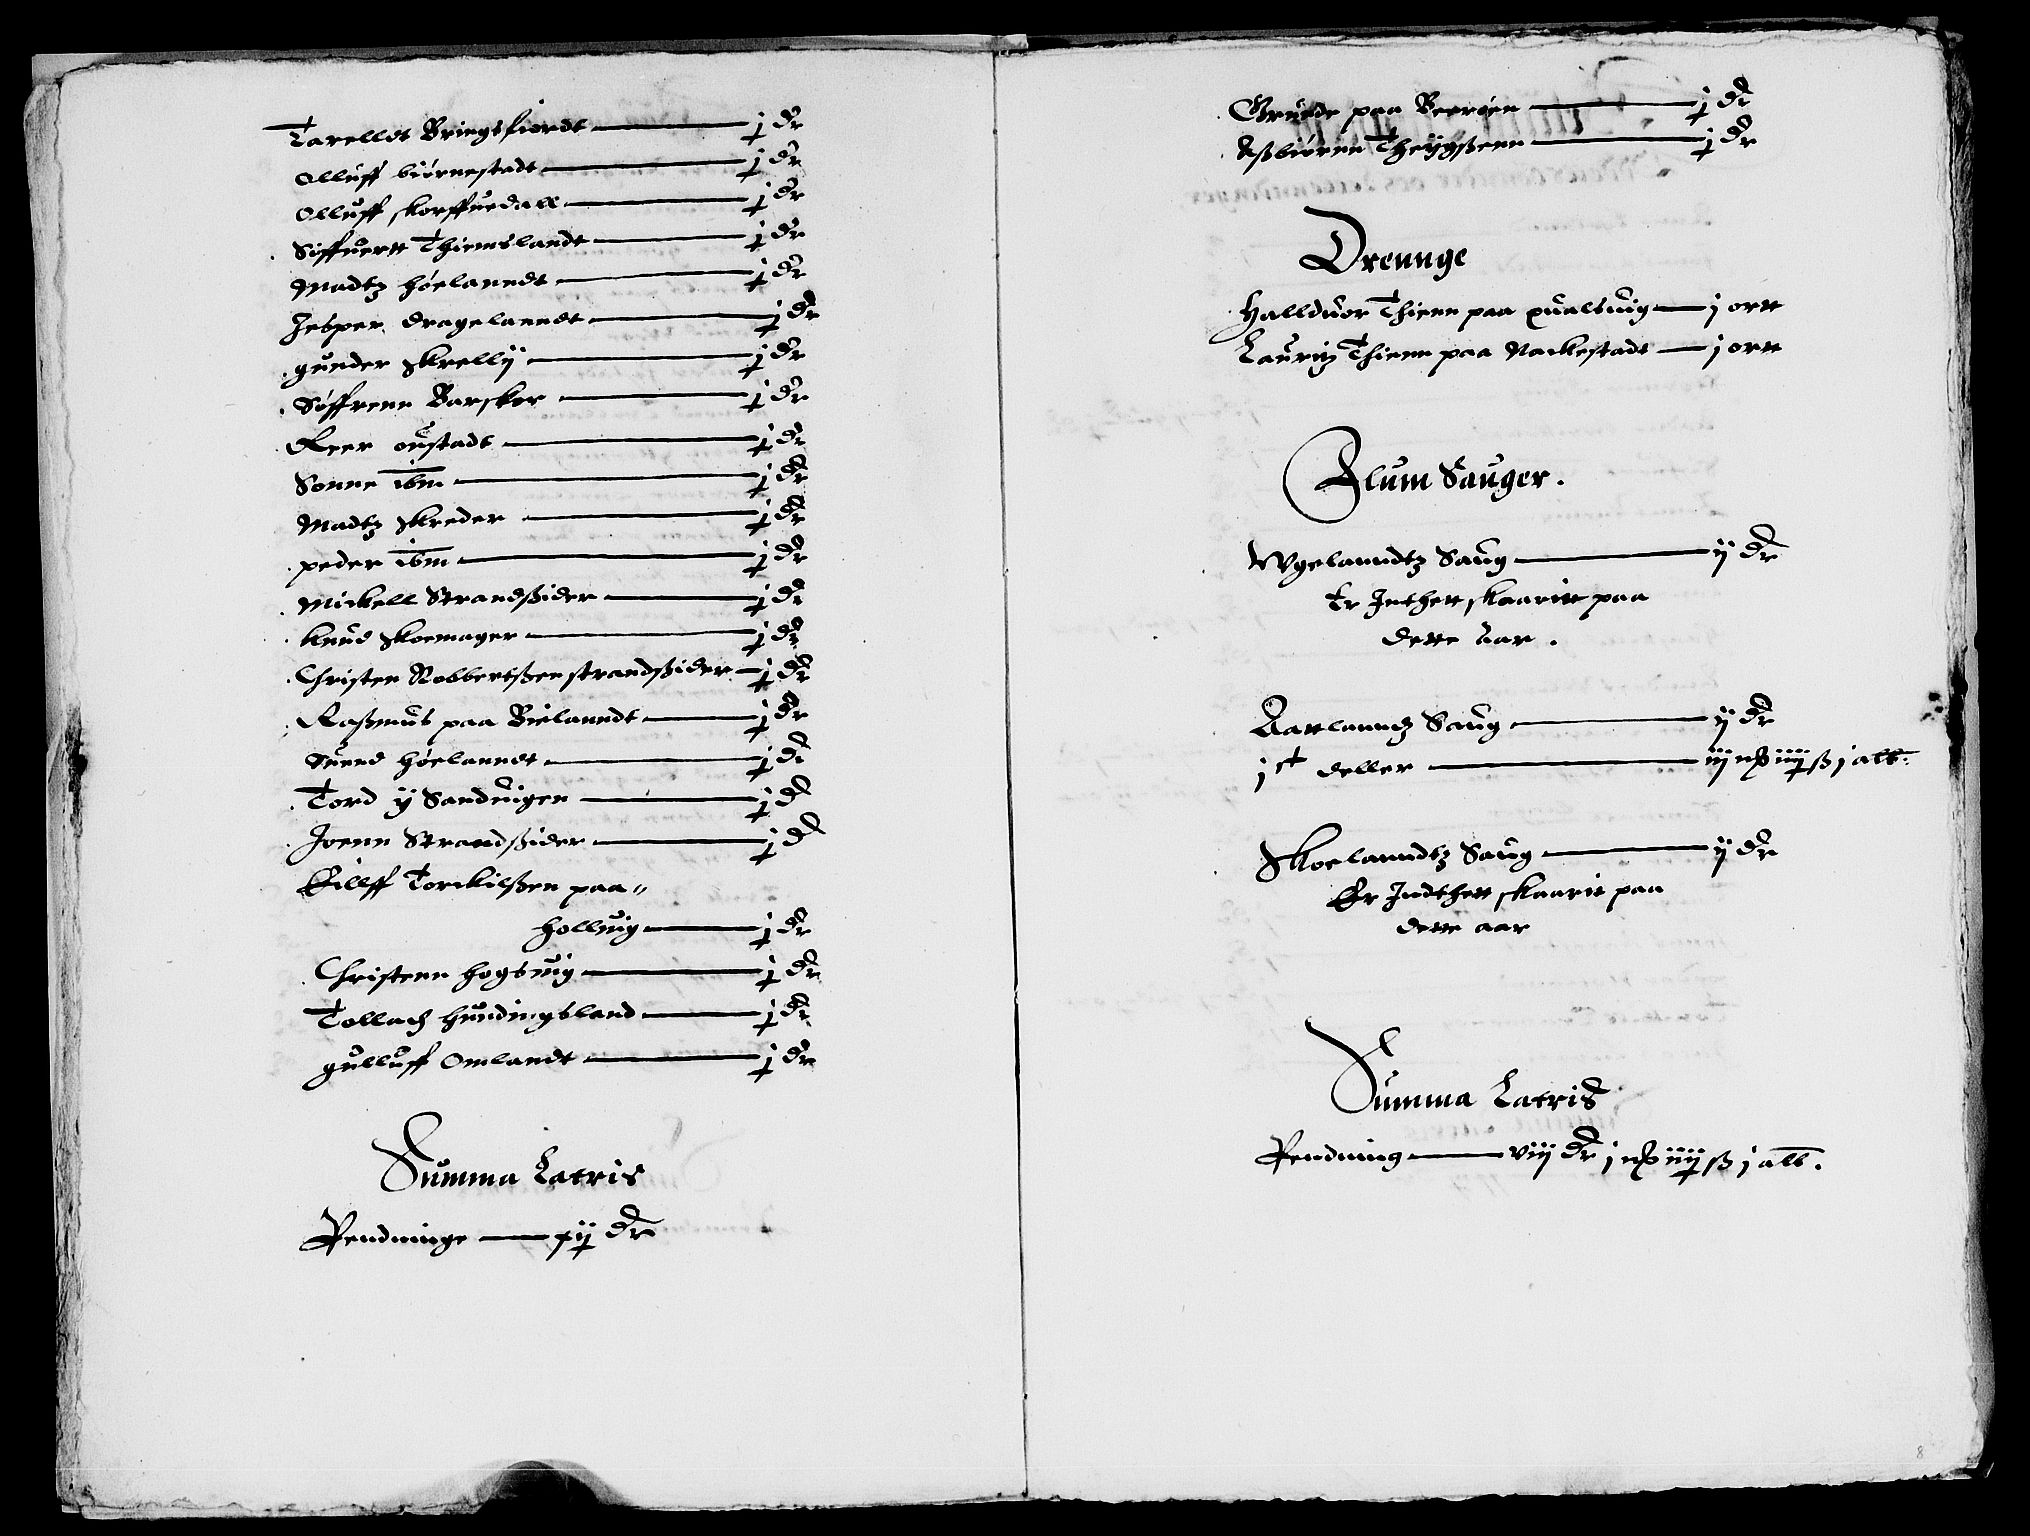 Tarelldt Bringsfiordt — j dr
Olluff biörnestadt — j dr
Olluff skorffuedall — j dr
Siffuertt Thiemslandt — j dr
Madtz höelanndt — j dr
Jesper dragelanndt — j dr
gunder skrellij — j dr
Söffrenn Barsker — j dr
Reer oustadt — j dr
Sonne ibm — j dr
Madtz skreder — j dr
peder ibm — j dr
Mickell Strandßider — j dr
knud skoemager — j dr
Christen Robbertßen strandßider — j dr
Raßmus paa Bielanndt — j dr
Suend höelanndt — j d
Tord ij Sanduigen — j d
Joenn Strandßider — j d
Eillff Torckilßen paa
holluig — j dr
Christenn hogsuig — j dr
Tollach hundingsland — j dr
gulluff Omlandt — j dr
Summa Latris
Pendninge — xij dr
Grunde paa Beeröen — j dr
Aßbiörnn Theygßenn — j dr
Drennge
Hallduor Thienn paa qualsuig — j ortt
Lauritz Thienn paa Nackestadt — j ortt
Flum Sauger.
Wgelanndtz Saug — ij dr
Er Inthett skaaritt paa
dette Aar.
Aartlanndtz Saug — ij dr
j ct deller — iij mk iiij ß j alb.
Skoelanndtz Saug — ij dr
Er Indthett skaarit paa
dette aar
Summa Latris
Pendning — viij dr j mk iiij ß j alb.
8